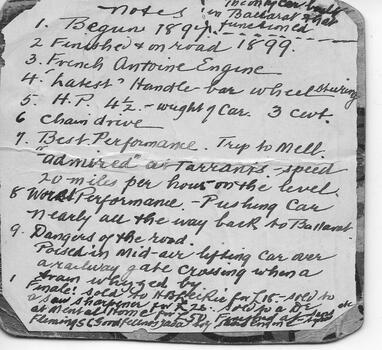 Notes
in Ballarat
functioned
1. Begun 189
2 Finished & on road 1899.
3. French Antoine Engine
4 "Latest" Handle-bar wheel steering
5. H.P. 4½ - weight of Car. 3 cwt.
6 chain drive
7. Best Performance. Trip to Melb.
"admired" at Tarrant's - speed
20 miles per hour on the level.
8 Worst Performance - Pushing Car
nearly all the way back to Ballarat.
9. Dangers of the road.
Poised in Mid-air lifting Car over
a railway gate crossing when a
train whizzed by
Finale: sold to for £15 - sold to
a saw sharpener for £25. sold to a Dr.
at Mental Home for £50.